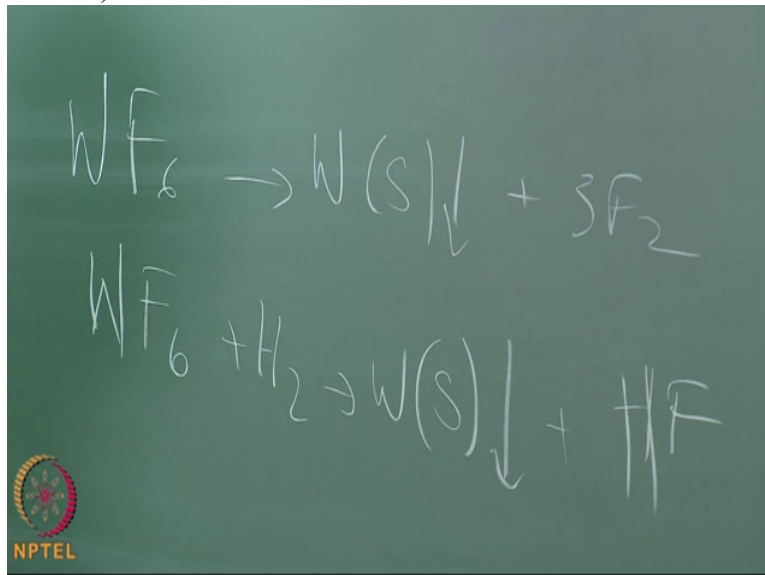 WF₆ → W(S)↓ + 3F₂
WF₆ + H₂ → W(S)↓ + HF
NPTEL